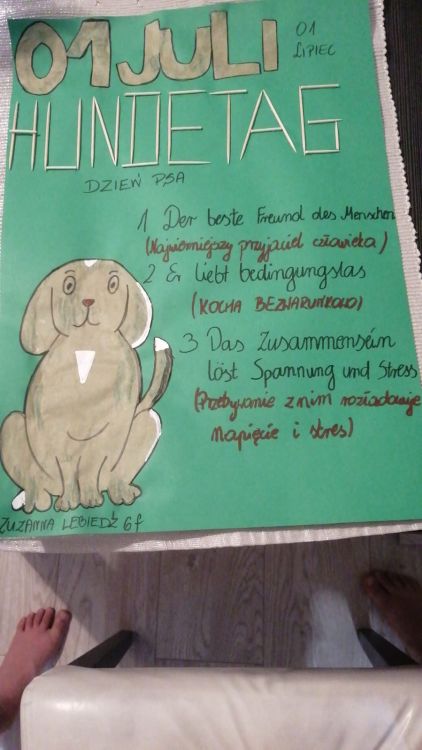 01 JULI
01
LIPIEC
HUNDETAG
DZIEŃ PSA
1 Der beste Freund des Menschen
(Najwierniejszy przyjaciel człowieka)
2 Er liebt bedingungslas
(KOCHA BEZWARUNKOWO)
3 Das Zusammensein
löst Spannung und Stress
(Przebywanie z nim rozładowuje
napięcie i stres)
ZUZANNA LEBIEDŹ 6f